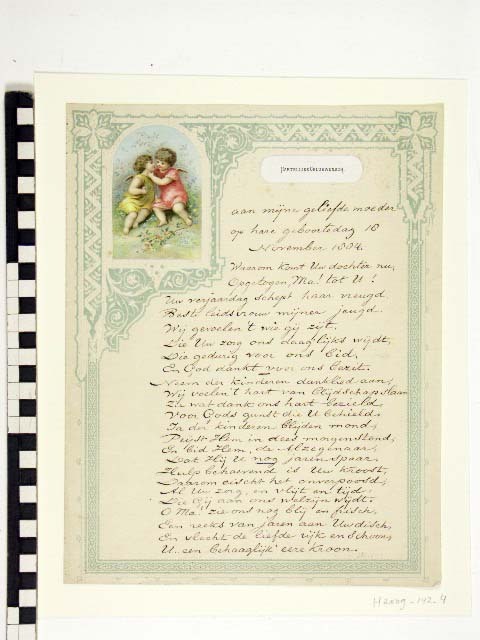 HARTELIJKE GELUKWENSCH.
aan mijne geliefde moeder
op hare geboortedag 18
November 1884.
Waarom komt Uw dochter nu,
Opgetogen, Ma! tot U!
Uw verjaardag schept haar vreugd
Beste leidsvrouw mijner jeugd.
Wij gevoelen't wie gij zijt,
Die Uw zorg ons daaglijks wijdt,
Die gedurig voor ons bid,
En God dankt voor ons bezit.
Neem der kinderen danklied aan,
Wij voelen't hart van blijdschap slaan
Zie wat dank ons hart bezield
Voor Gods gunst die U behield,
Ja der kinderen blijden mond,
Prijst Hem in deez morgenstond,
En bid Hem, de Alzegenaar,
Dat Hij U nog jaren spaar,
Hulp behoevend is Uw kroost,
Daarom eischt het onverpoosd,
Al Uw zorg, en vlijt en tijd,
Die Gij aan ons welzijn wijdt.
O Ma! zie ons nog blij en frisch,
Een reeks van jaren aan Uw disch,
En vlecht de liefde rijk en schoon,
U een behaaglijk' eerekroon.
H2009-142-4